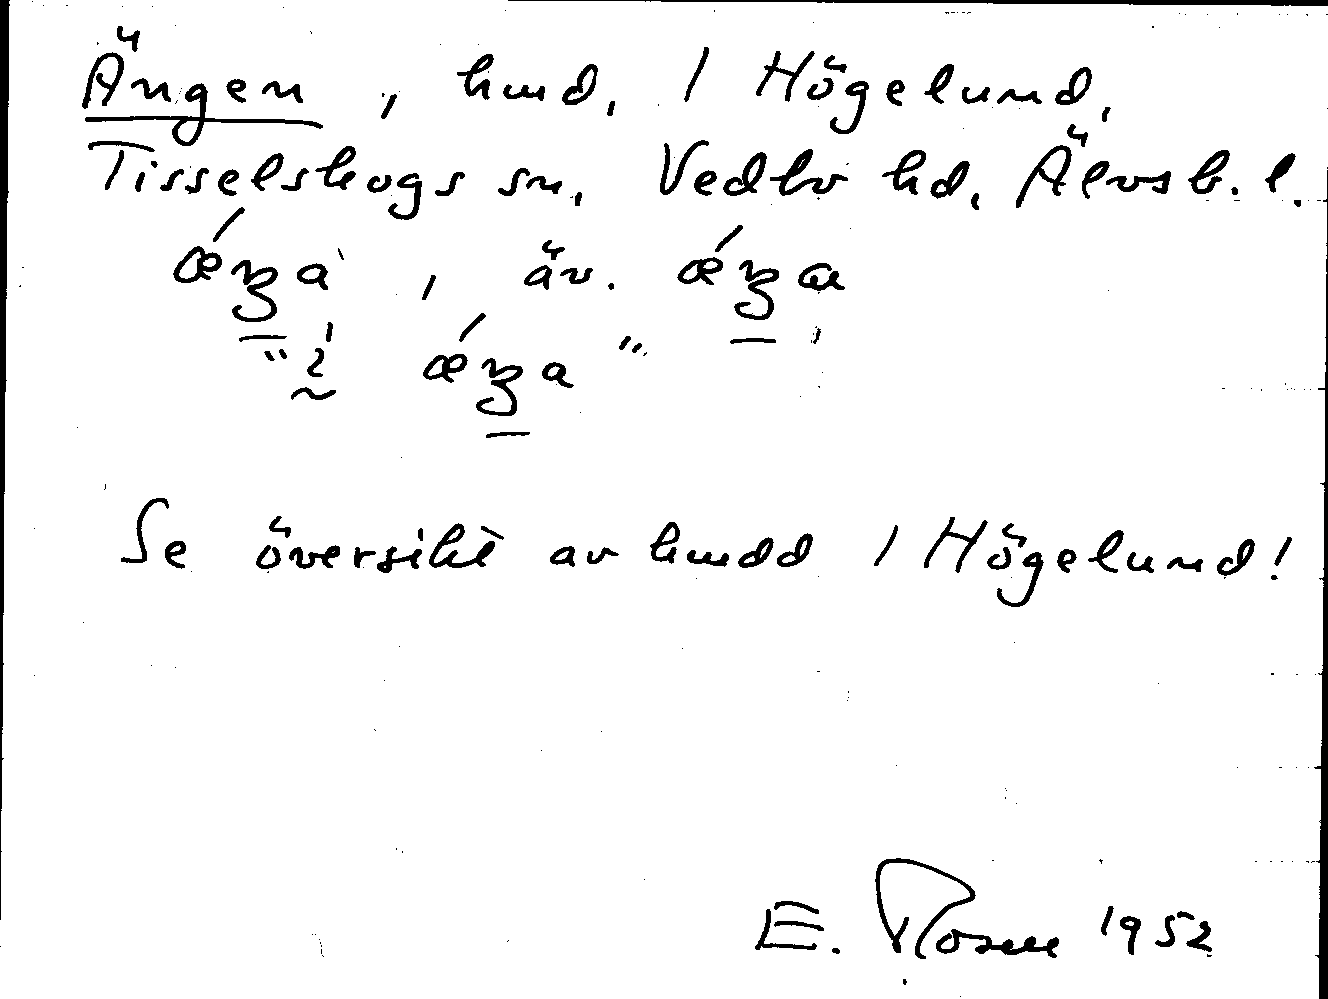 Ängen, hmd. / Högelund,
Tisselskogs sn, Vedbo hd, Älvsb. l.
ǽŋa, äv. ǽŋɑ
"i ǽŋa"
Se översikt av hmdd / Högelund!
E. Rosen 1952